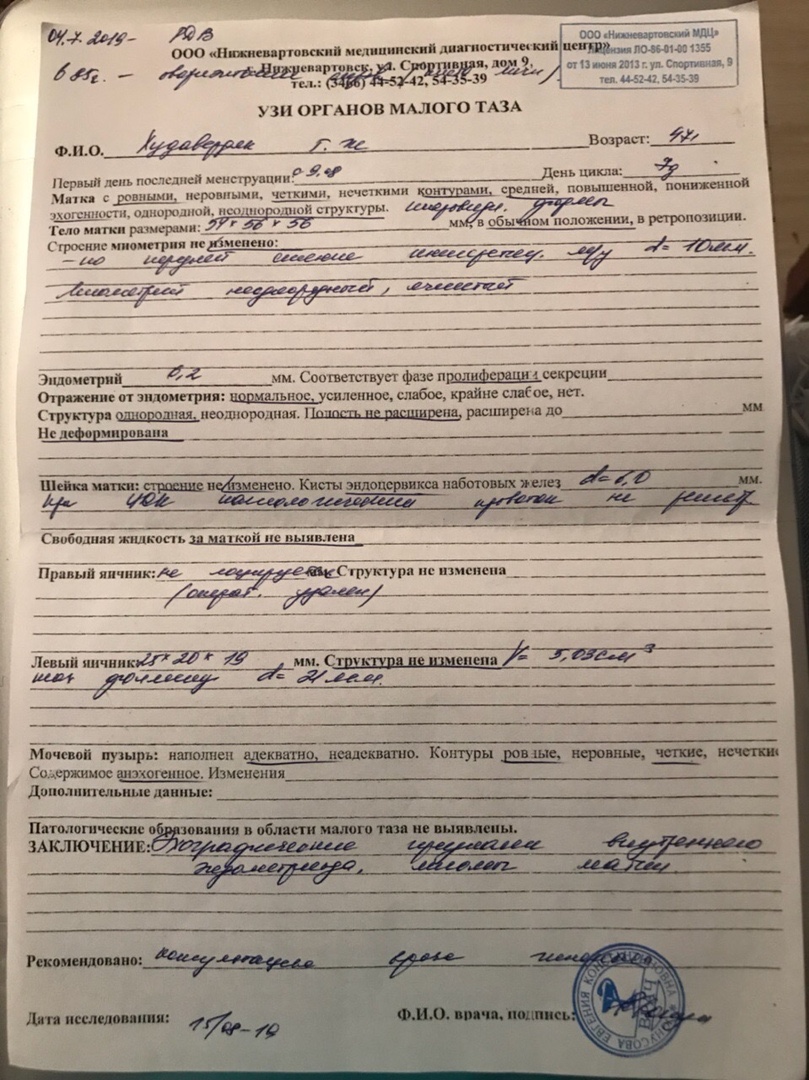 04.7.2019- РДВ
ООО «Нижневартовский медицинский диагностический центр»
г. Нижневартовск, ул. Спортивная, дом 9,
тел.: (3466) 44-52-42, 54-35-39
в 85г. –
ООО «Нижневартовский МДЦ»
Лицензия ЛО-86-01-00 1355
от 13 июня 2013 г. ул. Спортивная, 9
тел. 44-52-42, 54-35-39
УЗИ ОРГАНОВ МАЛОГО ТАЗА
Ф.И.О. Г. Ж Возраст: 47
Первый день последней менструации: 9.08 День цикла: 7д
Матка с ровными, неровными, четкими, нечеткими контурами, средней, повышенной, пониженной
эхогенности, однородной, неоднородной структуры. шаровидн. формы
Тело матки размерами: 59 × 56 × 56 мм, в обычном положении, в ретропозиции.
Строение миометрия не изменено:
– по передней стенке м/у d= 10мм.
миометрий неоднородный, ячеистый
Эндометрий 0,2 мм. Соответствует фазе пролиферации секреции
Отражение от эндометрия: нормальное, усиленное, слабое, крайне слабое, нет.
Структура однородная, неоднородная. Полость не расширена, расширена до мм
Не деформирована
Шейка матки: строение не изменено. Кисты эндоцервикса наботовых желез d= 6,0 мм.
при ЦДК патологический кровоток не регистр
Свободная жидкость за маткой не выявлена
Правый яичник: не лоцируется Структура не изменена
(операт. удален)
Левый яичник: 25 × 20 × 19 мм. Структура не изменена V= 5,03см³
фолликул d= 21 мм.
Мочевой пузырь: наполнен адекватно, неадекватно. Контуры ровные, неровные, четкие, нечеткие
Содержимое анэхогенное. Изменения
Дополнительные данные:
Патологические образования в области малого таза не выявлены.
ЗАКЛЮЧЕНИЕ: Эхографические признаки внутреннего
эндометриоза, миомы матки.
Рекомендовано: консультация врача гинеколога
Дата исследования: 15/08-19 Ф.И.О. врача, подпись:
ЕВГЕНИЯ КОНСТАНТИНОВНА
ВРАЧ